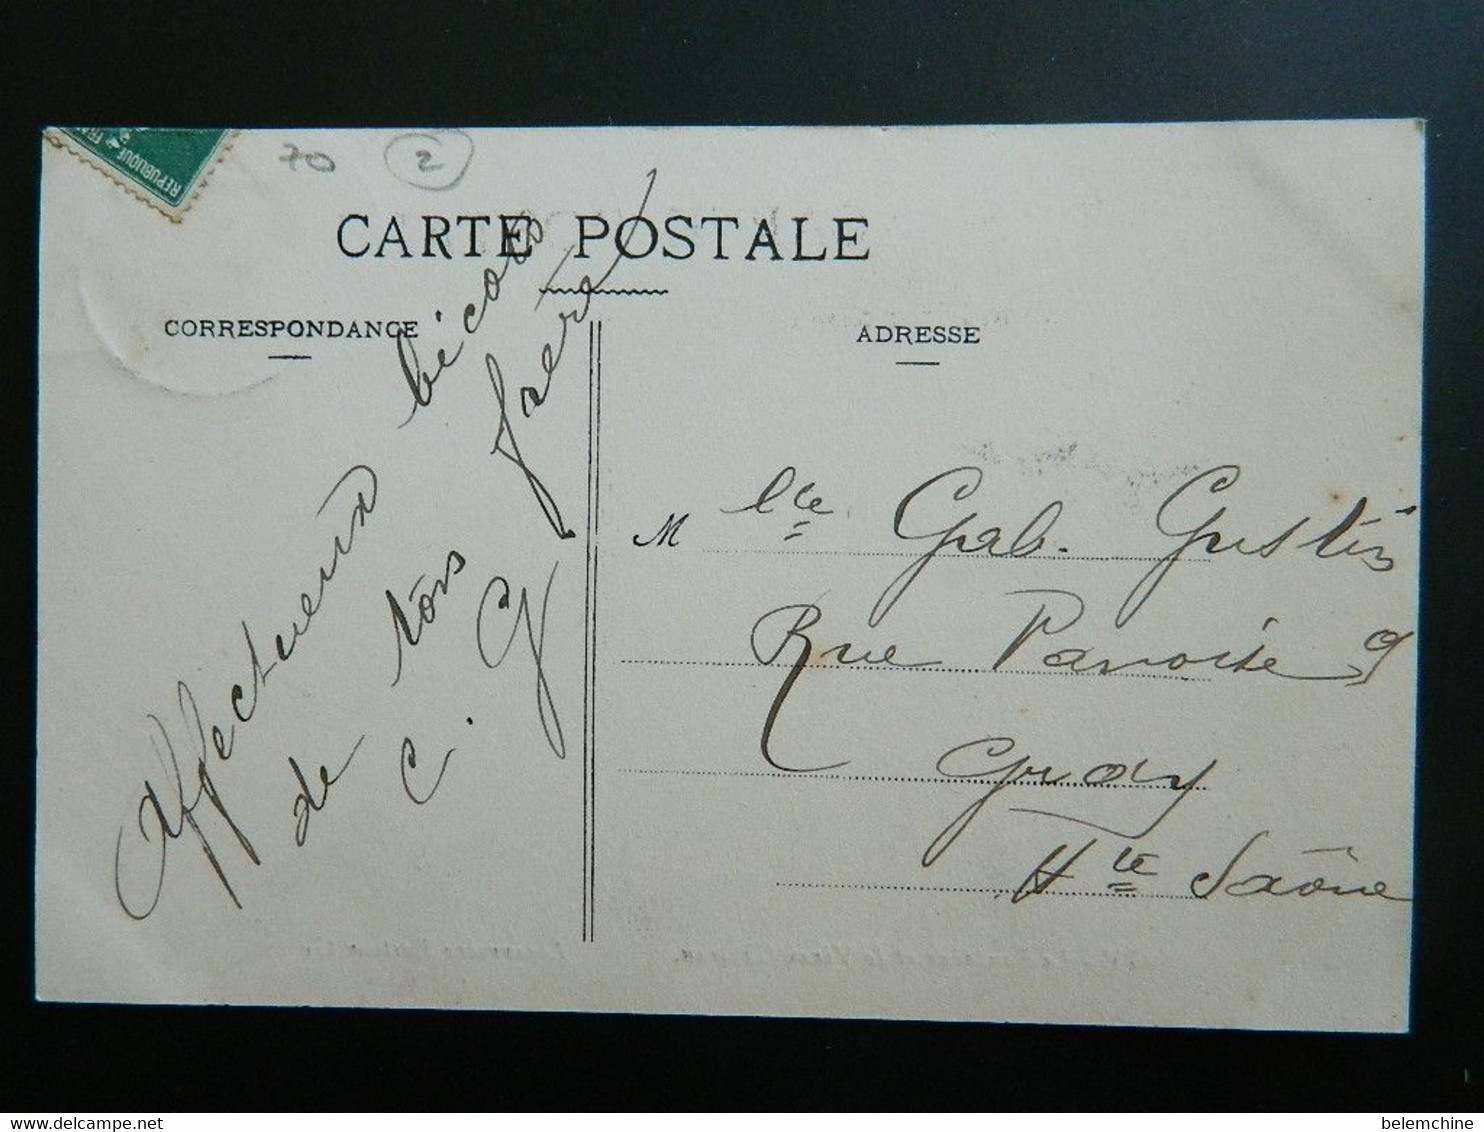 REPUBLIQUE FRA
70 2
CARTE POSTALE
CORRESPONDANCE
ADRESSE
Affectueux bécots
de ton frère
C. G
M lle Gab. Gustin
Rue Paroise 9
Gray
Hte Saône
www.delcampe.net
belemchine